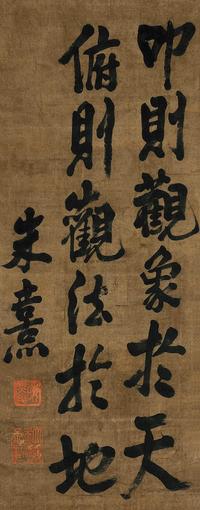 仰則觀象於天
俯則觀法於地
朱熹